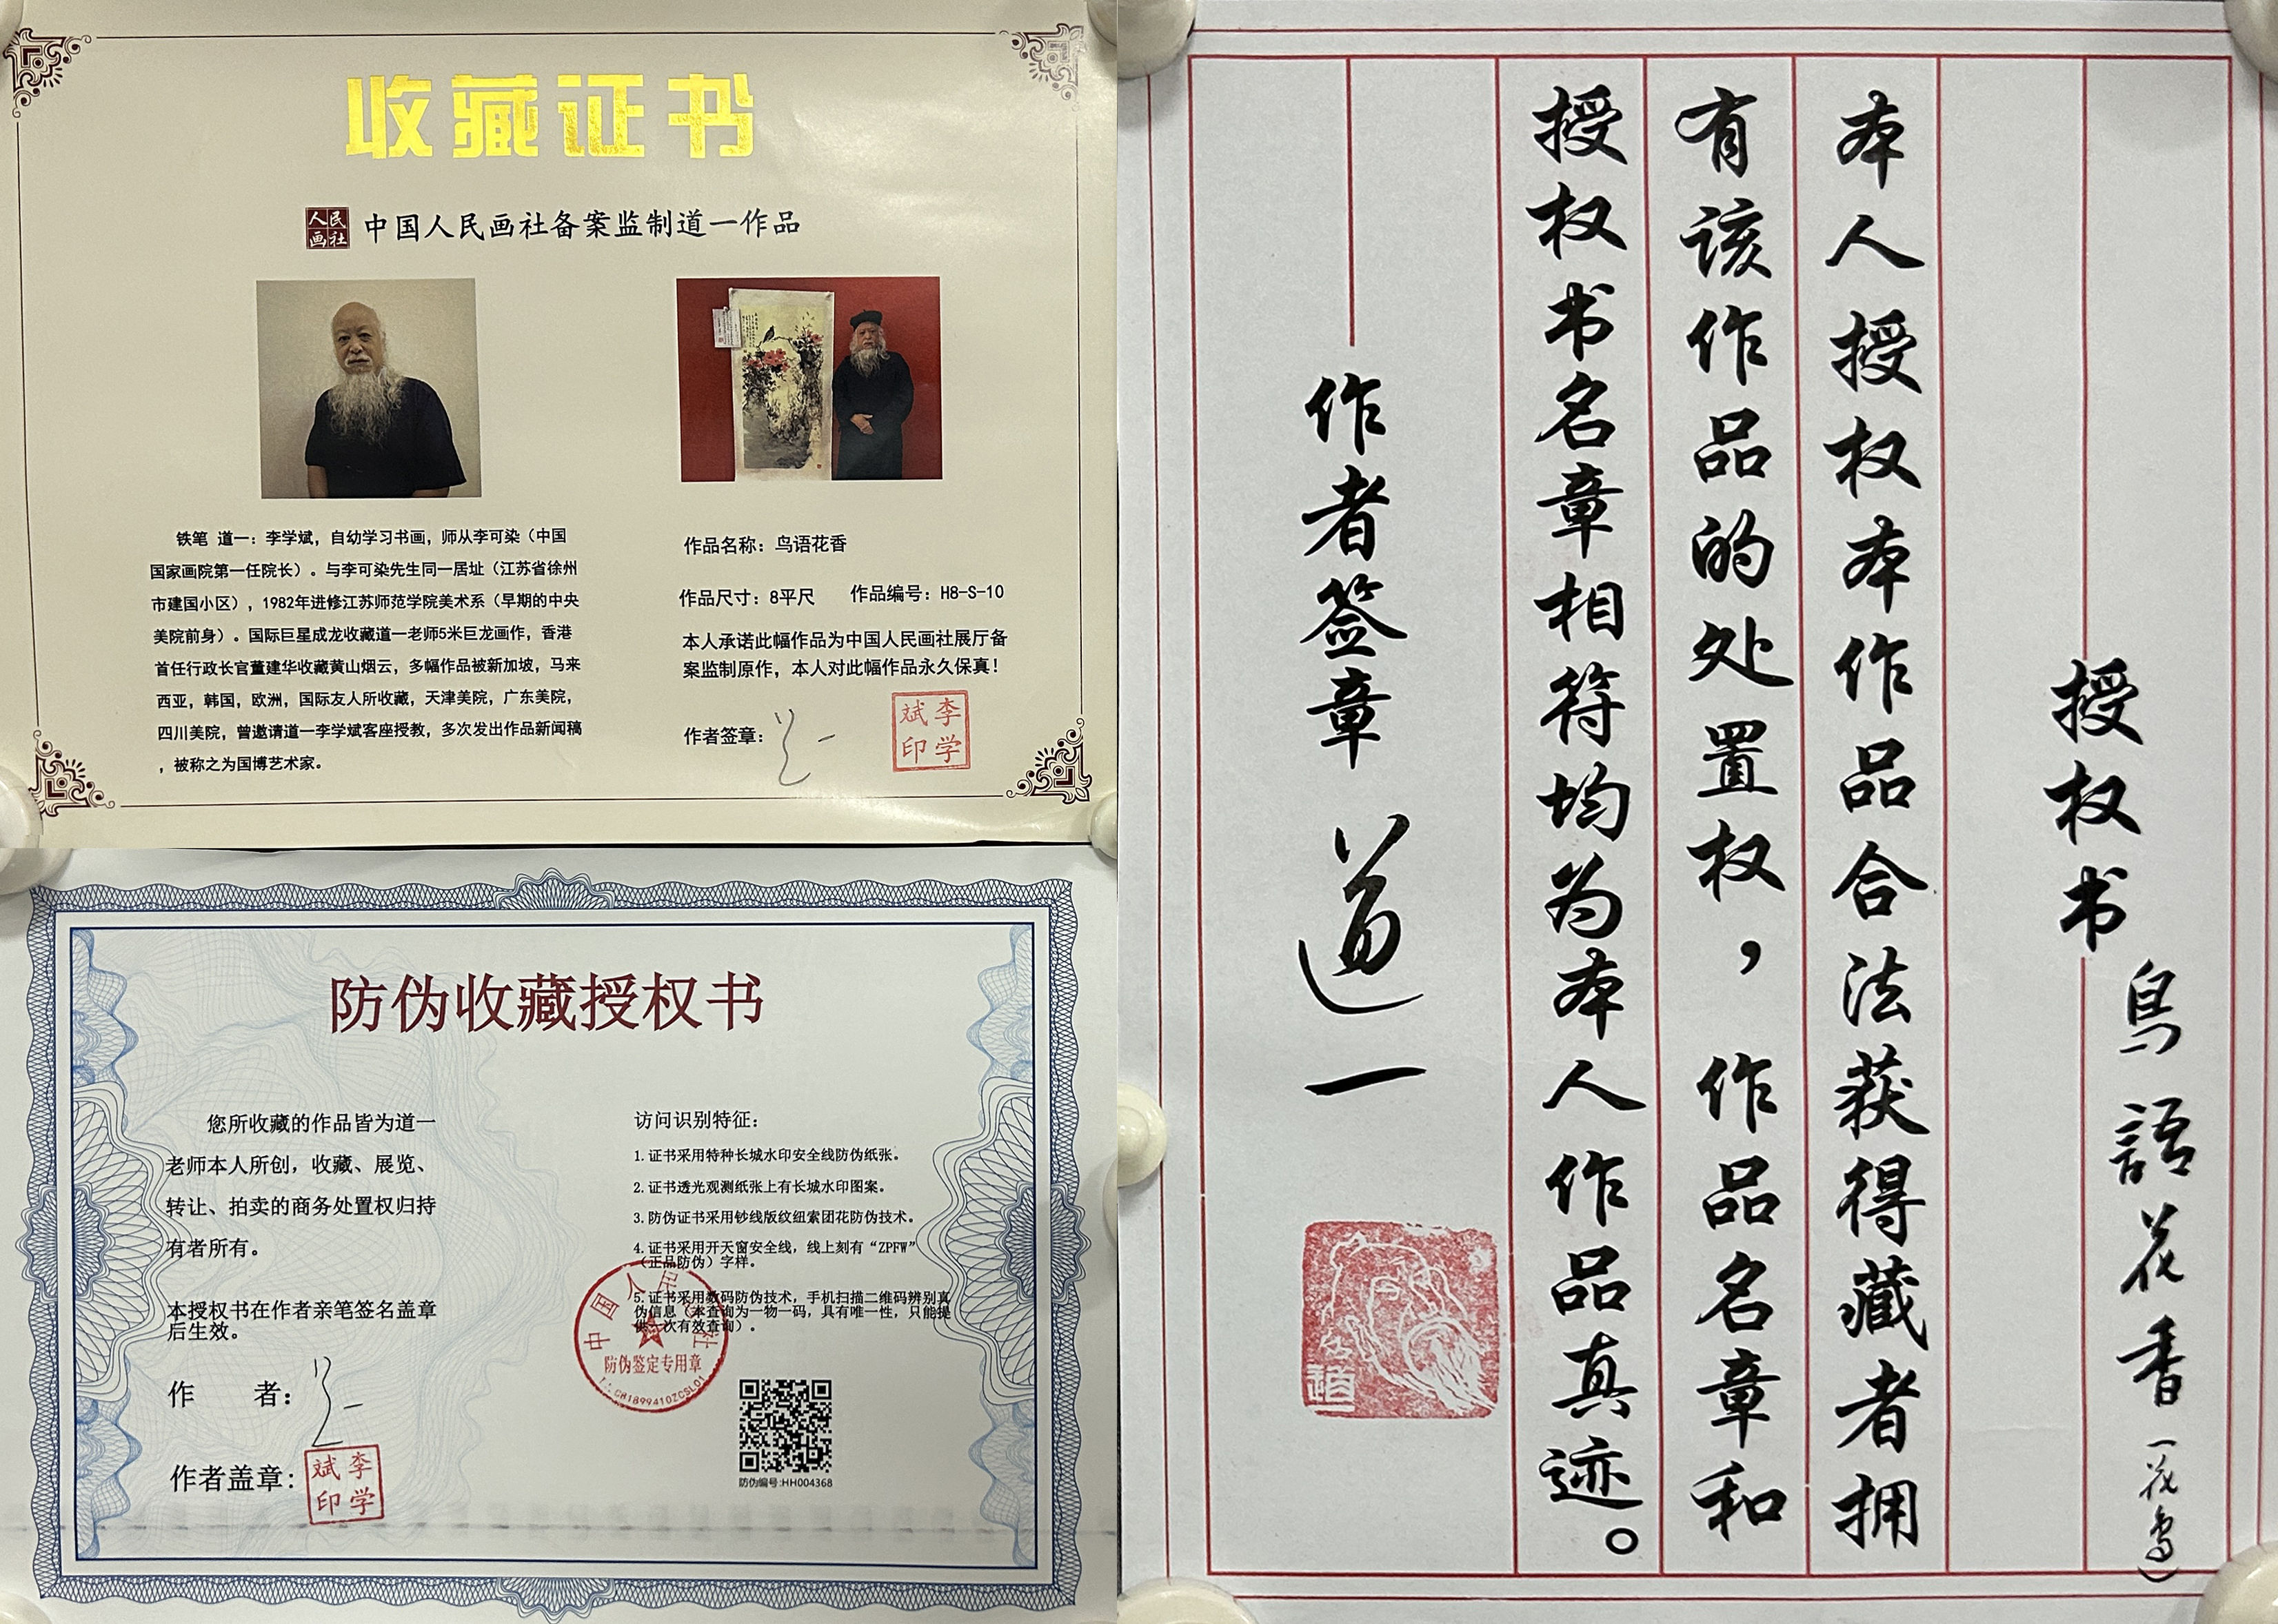 收藏证书
人民画社
中国人民画社备案监制道一作品
铁笔 道一：李学斌，自幼学习书画，师从李可染（中国
国家画院第一任院长）。与李可染先生同一居址（江苏省徐州
市建国小区），1982年进修江苏师范学院美术系（早期的中央
美院前身）。国际巨星成龙收藏道一老师5米巨龙画作，香港
首任行政长官董建华收藏黄山烟云，多幅作品被新加坡，马来
西亚，韩国，欧洲，国际友人所收藏，天津美院，广东美院，
四川美院，曾邀请道一李学斌客座授教，多次发出作品新闻稿
，被称之为国博艺术家。
作品名称：鸟语花香
作品尺寸：8平尺 作品编号：H8-S-10
本人承诺此幅作品为中国人民画社展厅备
案监制原作，本人对此幅作品永久保真！
作者签章：
李学斌印
防伪收藏授权书
您所收藏的作品皆为道一
老师本人所创，收藏、展览、
转让、拍卖的商务处置权归持
有者所有。
本授权书在作者亲笔签名盖章
后生效。
作 者：
作者盖章：
李学斌印
访问识别特征：
1.证书采用特种长城水印安全线防伪纸张。
2.证书透光观测纸张上有长城水印图案。
3.防伪证书采用钞线版纹纽索团花防伪技术。
4.证书采用开天窗安全线，线上刻有“ZPFW”
（正品防伪）字样。
5.证书采用数码防伪技术，手机扫描二维码辨别真
伪信息（本查询为一物一码，具有唯一性，只能提
供一次有效查询）。
中国人民画社
防伪鉴定专用章
防伪编号:HH004368
授权书
鸟語花香（花鸟）
本人授权本作品合法获得藏者拥
有该作品的处置权，作品名章和
授权书名章相符均为本人作品真迹。
作者签章 道一